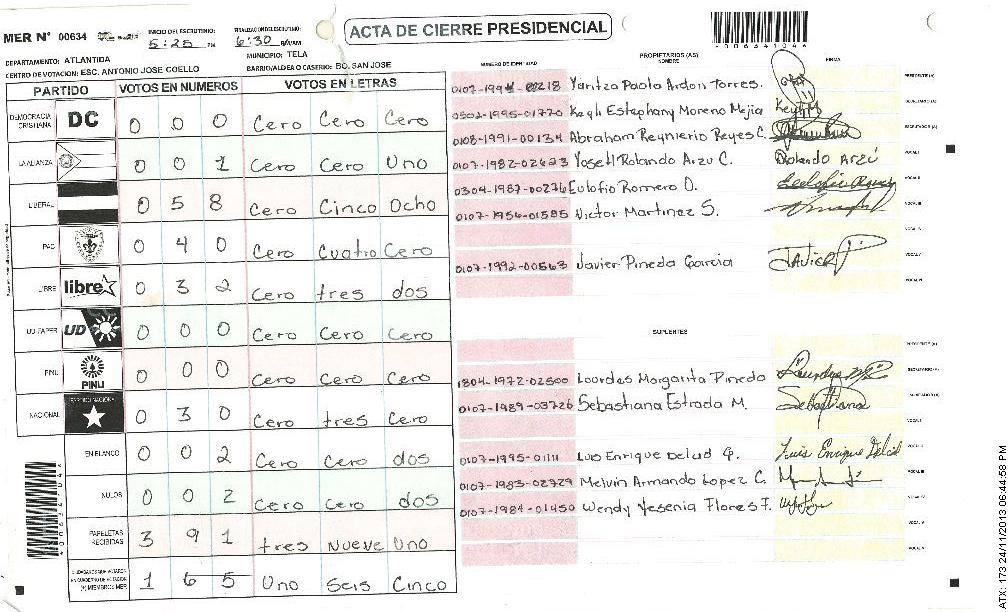 MER N° 00634
INICIO DEL ESCRUTINIO: 5:25 PM
FINALIZACION DEL ESCRUTINIO: 6:30
ACTA DE CIERRE PRESIDENCIAL
DEPARTAMENTO: ATLANTIDA
MUNICIPIO: TELA
CENTRO DE VOTACION: ESC. ANTONIO JOSE COELLO
BARRIO/ALDEA O CASERIO: BO. SAN JOSE
PARTIDO VOTOS EN NUMEROS VOTOS EN LETRAS
DEMOCRACIA CRISTIANA DC 0 0 0 Cero Cero Cero
LA ALIANZA 0 0 1 Cero Cero Uno
LIBERAL 0 5 8 Cero Cinco Ocho
PAC 0 4 0 Cero Cuatro Cero
LIBRE libre 0 3 2 Cero tres dos
UD-FAPER UD 0 0 0 Cero Cero Cero
PINU PINU 0 0 0 Cero Cero Cero
NACIONAL PARTIDO NACIONAL 0 3 0 Cero tres Cero
EN BLANCO 0 0 2 Cero Cero dos
NULOS 0 0 2 Cero Cero dos
PAPELETAS RECIBIDAS 3 9 1 tres Nueve Uno
CIUDADANOS QUE VOTARON EN CUADERNO DE VOTACION (+) MIEMBROS MER 1 6 5 Uno Seis Cinco
PROPIETARIOS (AS)
NUMERO DE IDENTIDAD NOMBRE FIRMA
Yaritza Paola Ardon Torres. PRESIDENTE (A)
0502-1995-01770 Keyli Estephany Moreno Mejia SECRETARIO (A)
0108-1991-00134 Abraham Reynierio Reyes C. ESCRUTADOR (A)
0107-1982-02623 Yosett Rolando Arzu C. Rolando Arzú VOCAL I
0304-1987-00276 Eulofio Romero O. VOCAL II
0107-1956-01585 Victor Martinez S. VOCAL III
VOCAL IV
0107-1992-00563 Javier Pineda Garcia JAVIER P VOCAL V
VOCAL VI
SUPLENTES
PRESIDENTE (A)
1804-1972-02500 Lourdes Margarita Pineda SECRETARIO (A)
0107-1989-03726 Sebastiana Estrada M. Sebastiana ESCRUTADOR (A)
VOCAL I
0107-1995-01111 Luis Enrique Delcid G. Luis Enrique Delcid VOCAL II
0107-1983-02729 Melvin Armando Lopez C. VOCAL III
0107-1984-01450 Wendy Yesenia Flores F. VOCAL IV
VOCAL V
VOCAL VI
ATX: 173 24/11/2013 06:44:58 PM